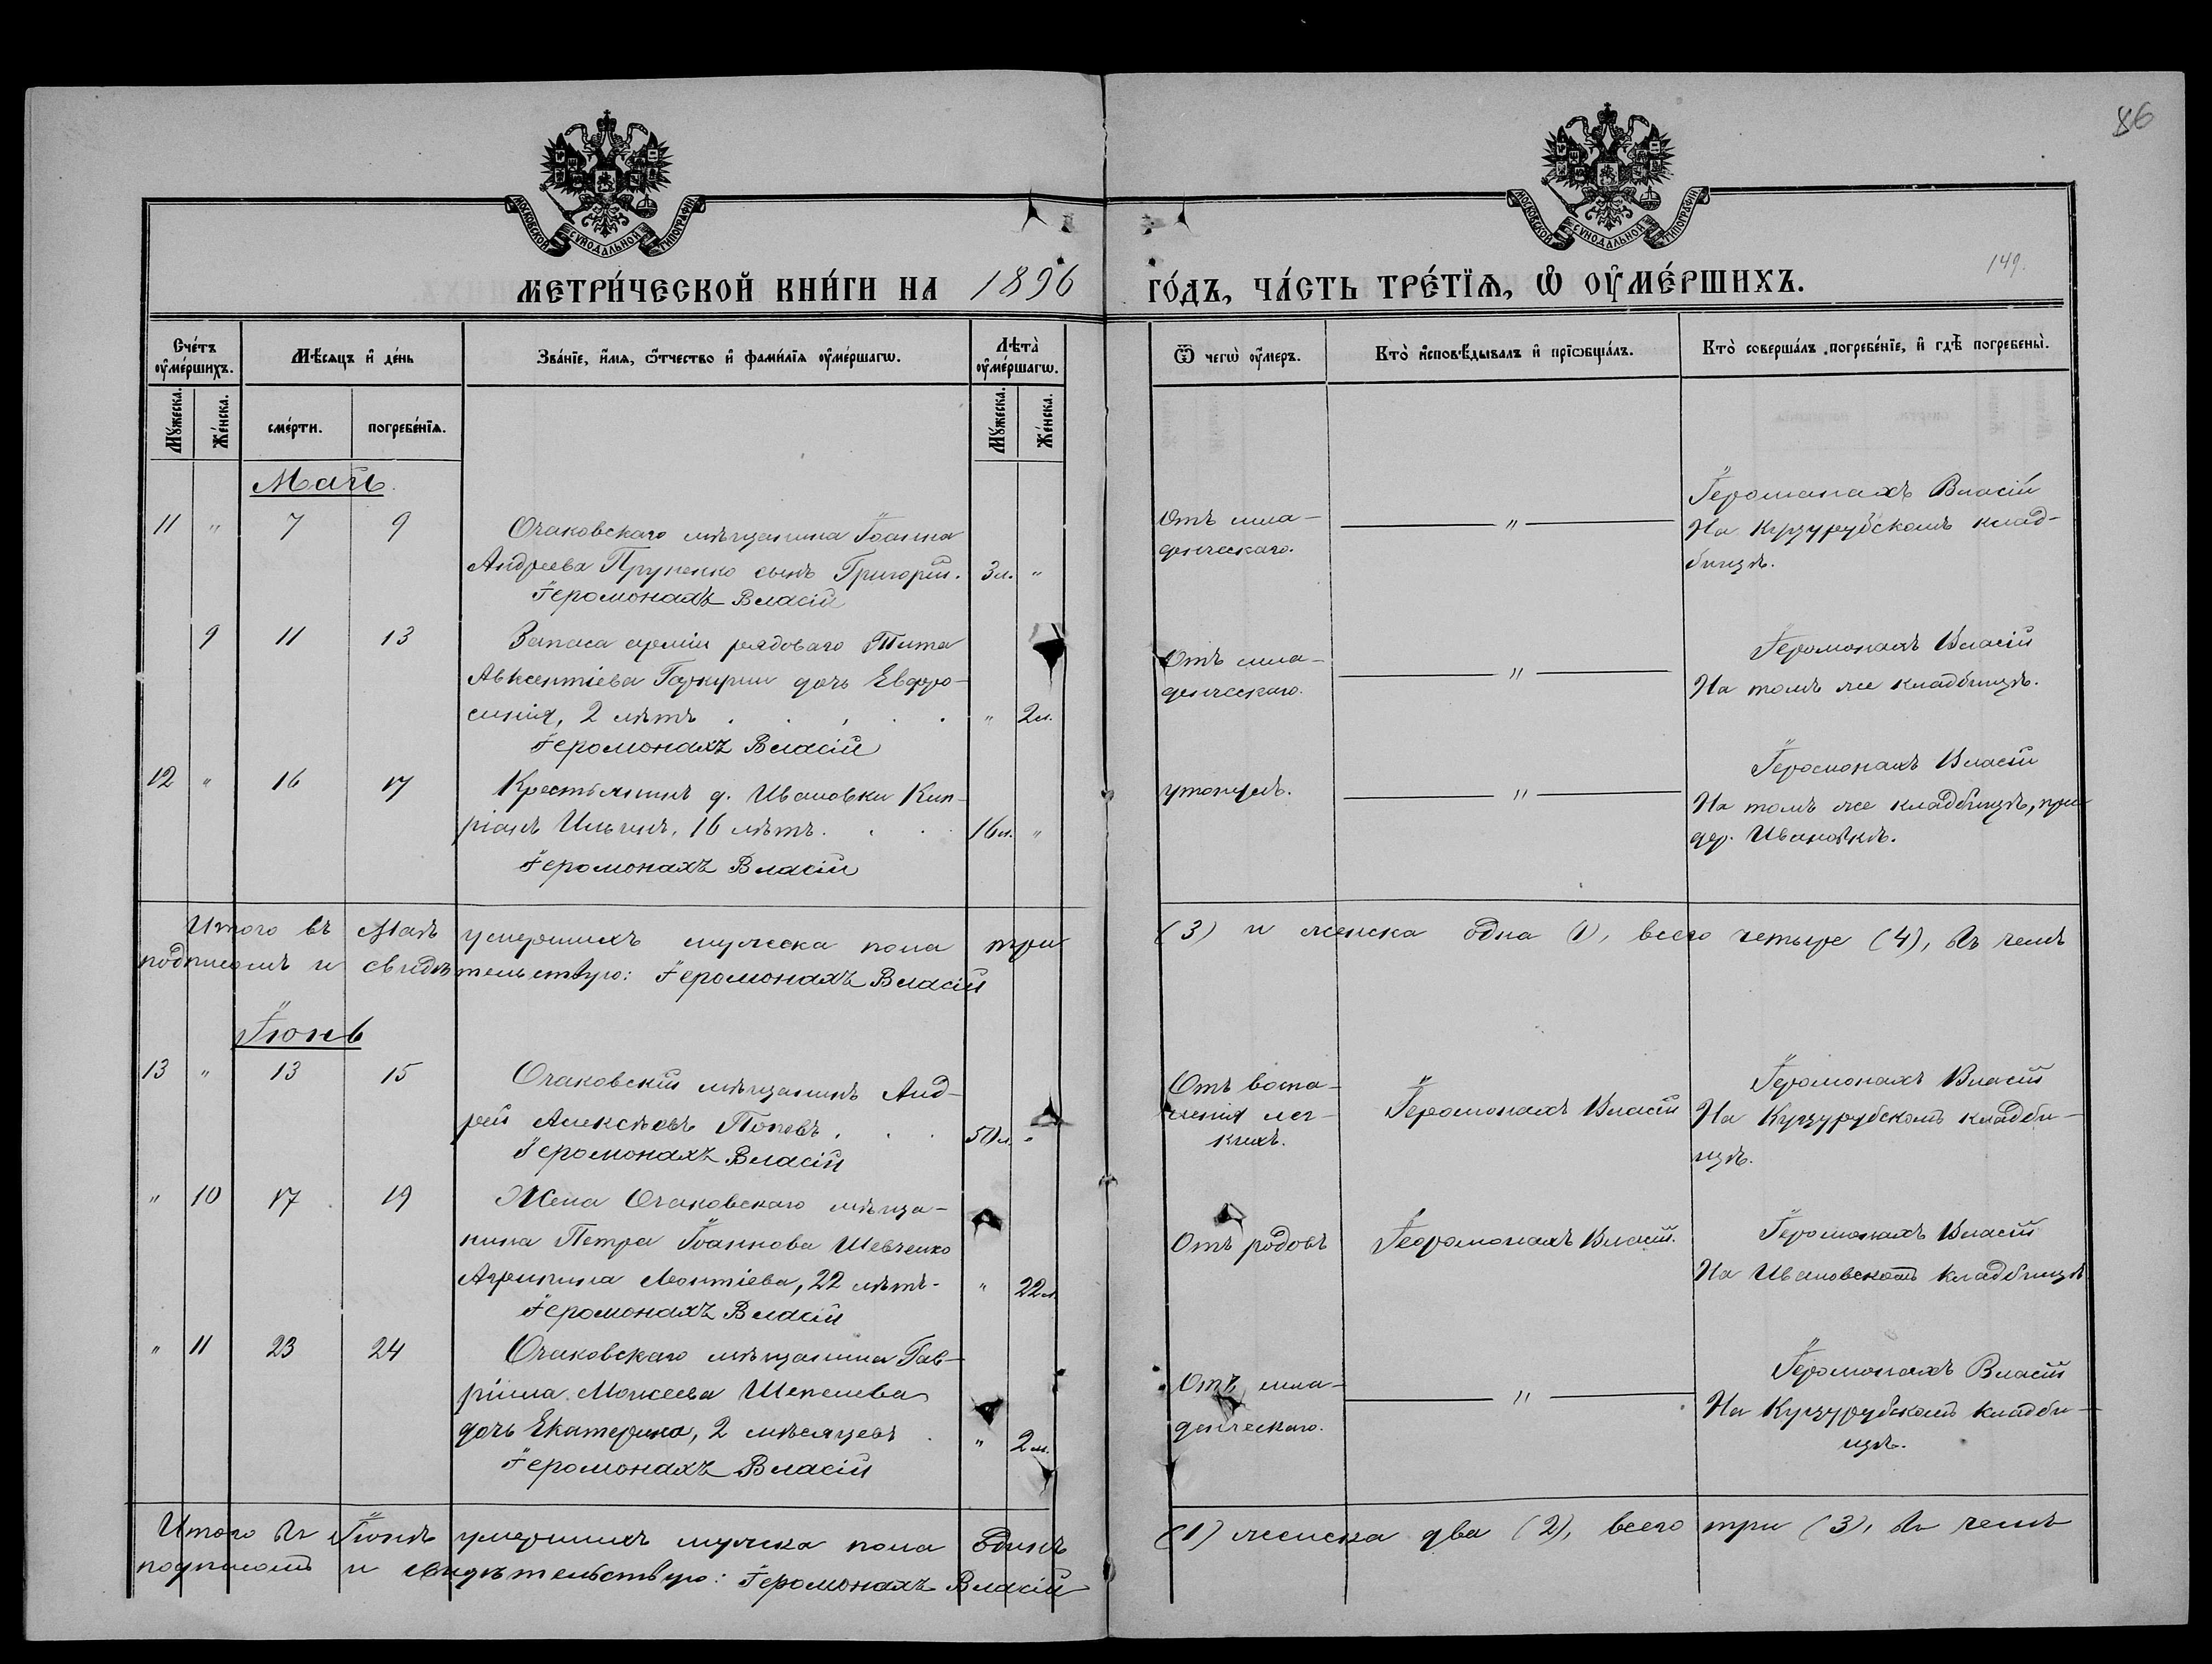 86
МОСКОВСКОЙ СУНОДАЛЬНОЙ ТИПОГРАФІИ
МОСКОВСКОЙ СУНОДАЛЬНОЙ ТИПОГРАФІИ
149.
МЕТРИ́ЧЕСКОЙ КНИ́ГИ НА 1896 ГО́ДЪ, ЧА́СТЬ ТРЕ́ТЇѦ, Ѡ҆ ОУ҆МЕ́РШИХЪ.
Сче́тъ оу҆ме́ршихъ.
Мꙋ́жеска.
Же́нска.
Мѣ́сяцъ и҆ де́нь
сме́рти.
погребе́нїѧ.
Зва́нїе, и҆́мѧ, ѻ҆́тчество и҆ фами́лїѧ оу҆ме́ршагѡ.
Лѣта̀ оу҆ме́ршагѡ.
Мꙋ́жеска.
Же́нска.
Ѿ чегѡ̀ оу҆́меръ.
Кто̀ и҆сповѣ́дывалъ и҆ прїѡбща́лъ.
Кто̀ соверша́лъ погребе́нїе, и҆ гдѣ̀ погребены̀.
Май.
11 " 7 9
Очаковскаго мѣщанина Іоанна
Андреева Пруненко сынъ Григорій. 3 л. "
Іеромонахъ Власій
Отъ мла-
денческаго.
"
Іеромонахъ Власій
На Куцурубскомъ клад-
бищѣ.
9 11 13
Запаса арміи рядоваго Тита
Авксентіева дочь Евфро-
синія, 2 лѣтъ . . . . . " 2 л.
Іеромонахъ Власій
Отъ мла-
денческаго.
"
Іеромонахъ Власій
На томъ же кладбищѣ.
12 " 16 17
Крестьянинъ д. Ивановки Кип-
ріанъ Ильинъ, 16 лѣтъ. . . 16 л. "
Іеромонахъ Власій
утонулъ.
"
Іеромонахъ Власій
На томъ же кладбищѣ, при
дер. Ивановкѣ.
Итого въ Маѣ умершихъ мужеска пола три (3) и женска одна (1), всего четыре (4), въ чемъ
подписомъ и свидѣтельствую: Іеромонахъ Власій
Іюнь
13 " 13 15
Очаковскій мѣщанинъ Анд-
рей Алексѣевъ Поповъ . . . 50 л. "
Іеромонахъ Власій
Отъ воспа-
ленія лег-
кихъ.
Іеромонахъ Власій
Іеромонахъ Власій
На Куцурубскомъ кладби-
щѣ.
" 10 17 19
Жена Очаковскаго мѣща-
нина Петра Іоаннова Шевченко
Агрипина Леонтіева, 22 лѣтъ- " 22 л.
Іеромонахъ Власій
Отъ родовъ
Іеромонахъ Власій.
Іеромонахъ Власій
На Ивановскомъ кладбищѣ
" 11 23 24
Очаковскаго мѣщанина Гав-
ріила Моисеева Шепелева
дочь Екатерина, 2 мѣсяцевъ . " 2 м.
Іеромонахъ Власій
Отъ мла-
денческаго.
"
Іеромонахъ Власій
На Куцурубскомъ кладби-
щѣ.
Итого въ Іюнѣ умершихъ мужска пола одинъ (1) женска два (2), всего три (3), въ чемъ
подписомъ и свидѣтельствую: Іеромонахъ Власій